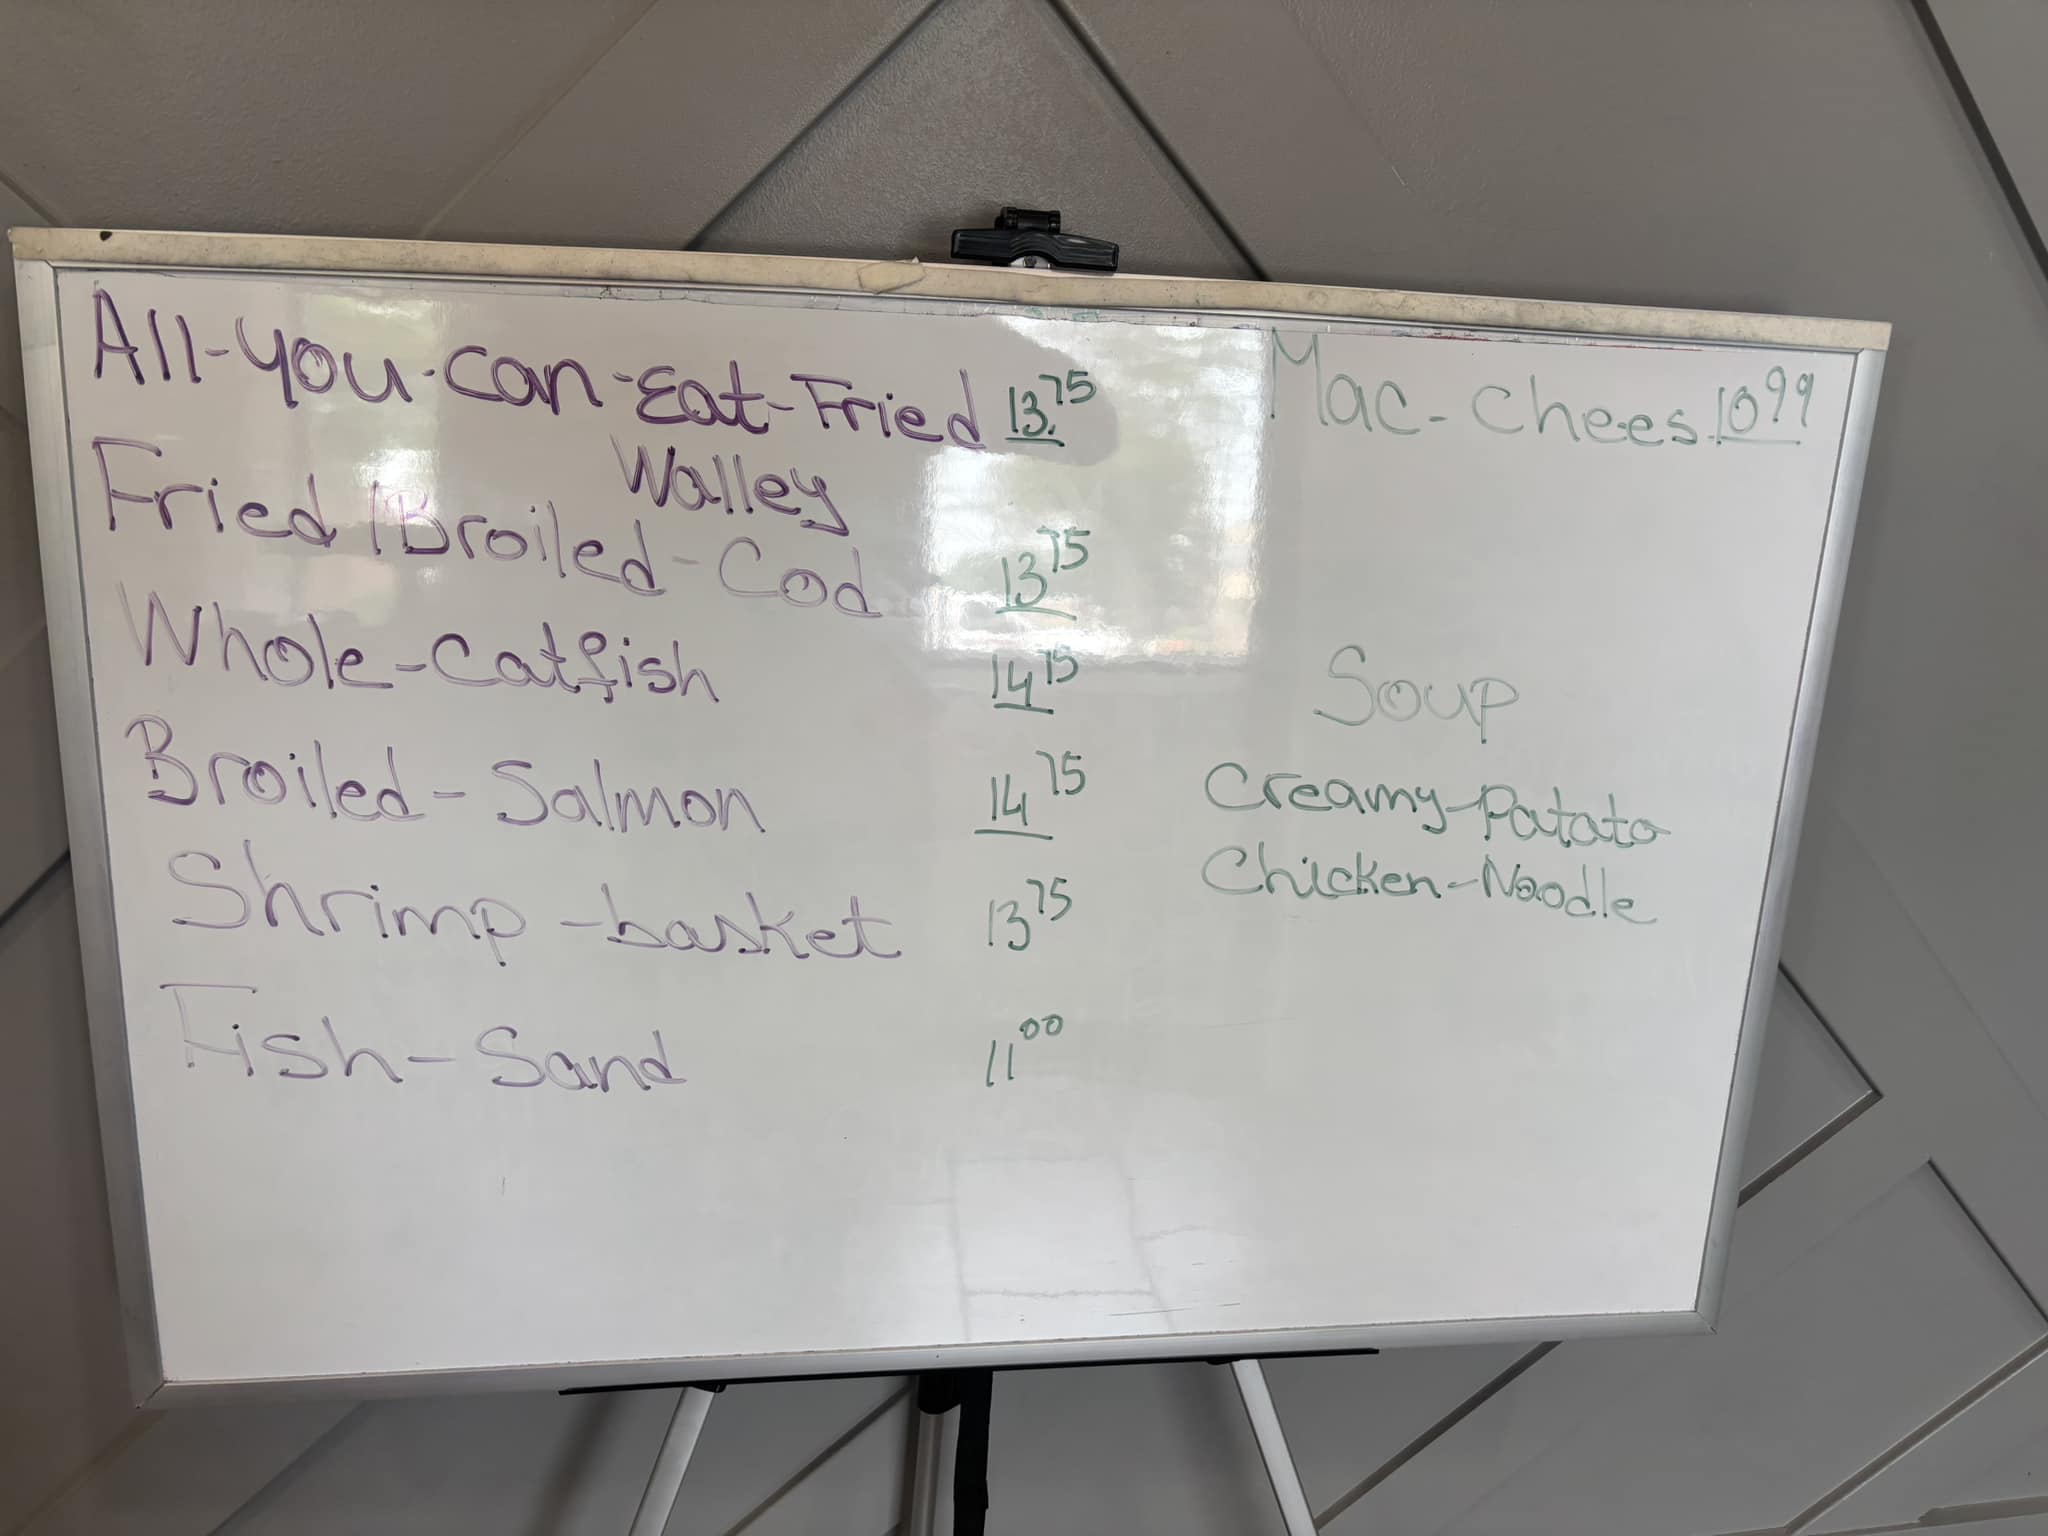 All-you-can-Eat-Fried 13.75
Walley
Fried/Broiled-Cod 13 75
Whole-Catfish 14 75
Broiled-Salmon 14 75
Shrimp-basket 13 75
Fish-Sand 11 00
Mac-Chees 10 99
Soup
Creamy-Patato
Chicken-Noodle